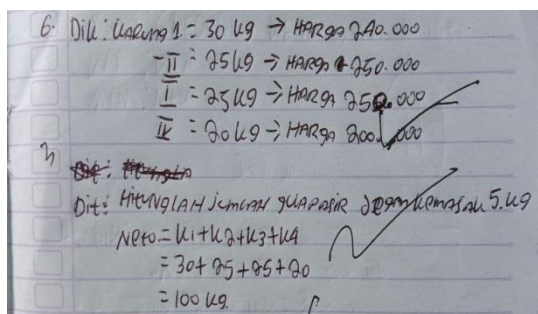 6. Dik: Karung 1 = 30 kg → HARGA 240.000
-II = 25 kg → HARGA 250.000
I = 25 kg → HARGA 250.000
IV = 20 kg → HARGA 200.000
Dit: HITUNGLAH JUMLAH GULA PASIR kemasan 5.kg
Neto = K1 + K2 + K3 + K4
= 30 + 25 + 25 + 20
= 100 kg.